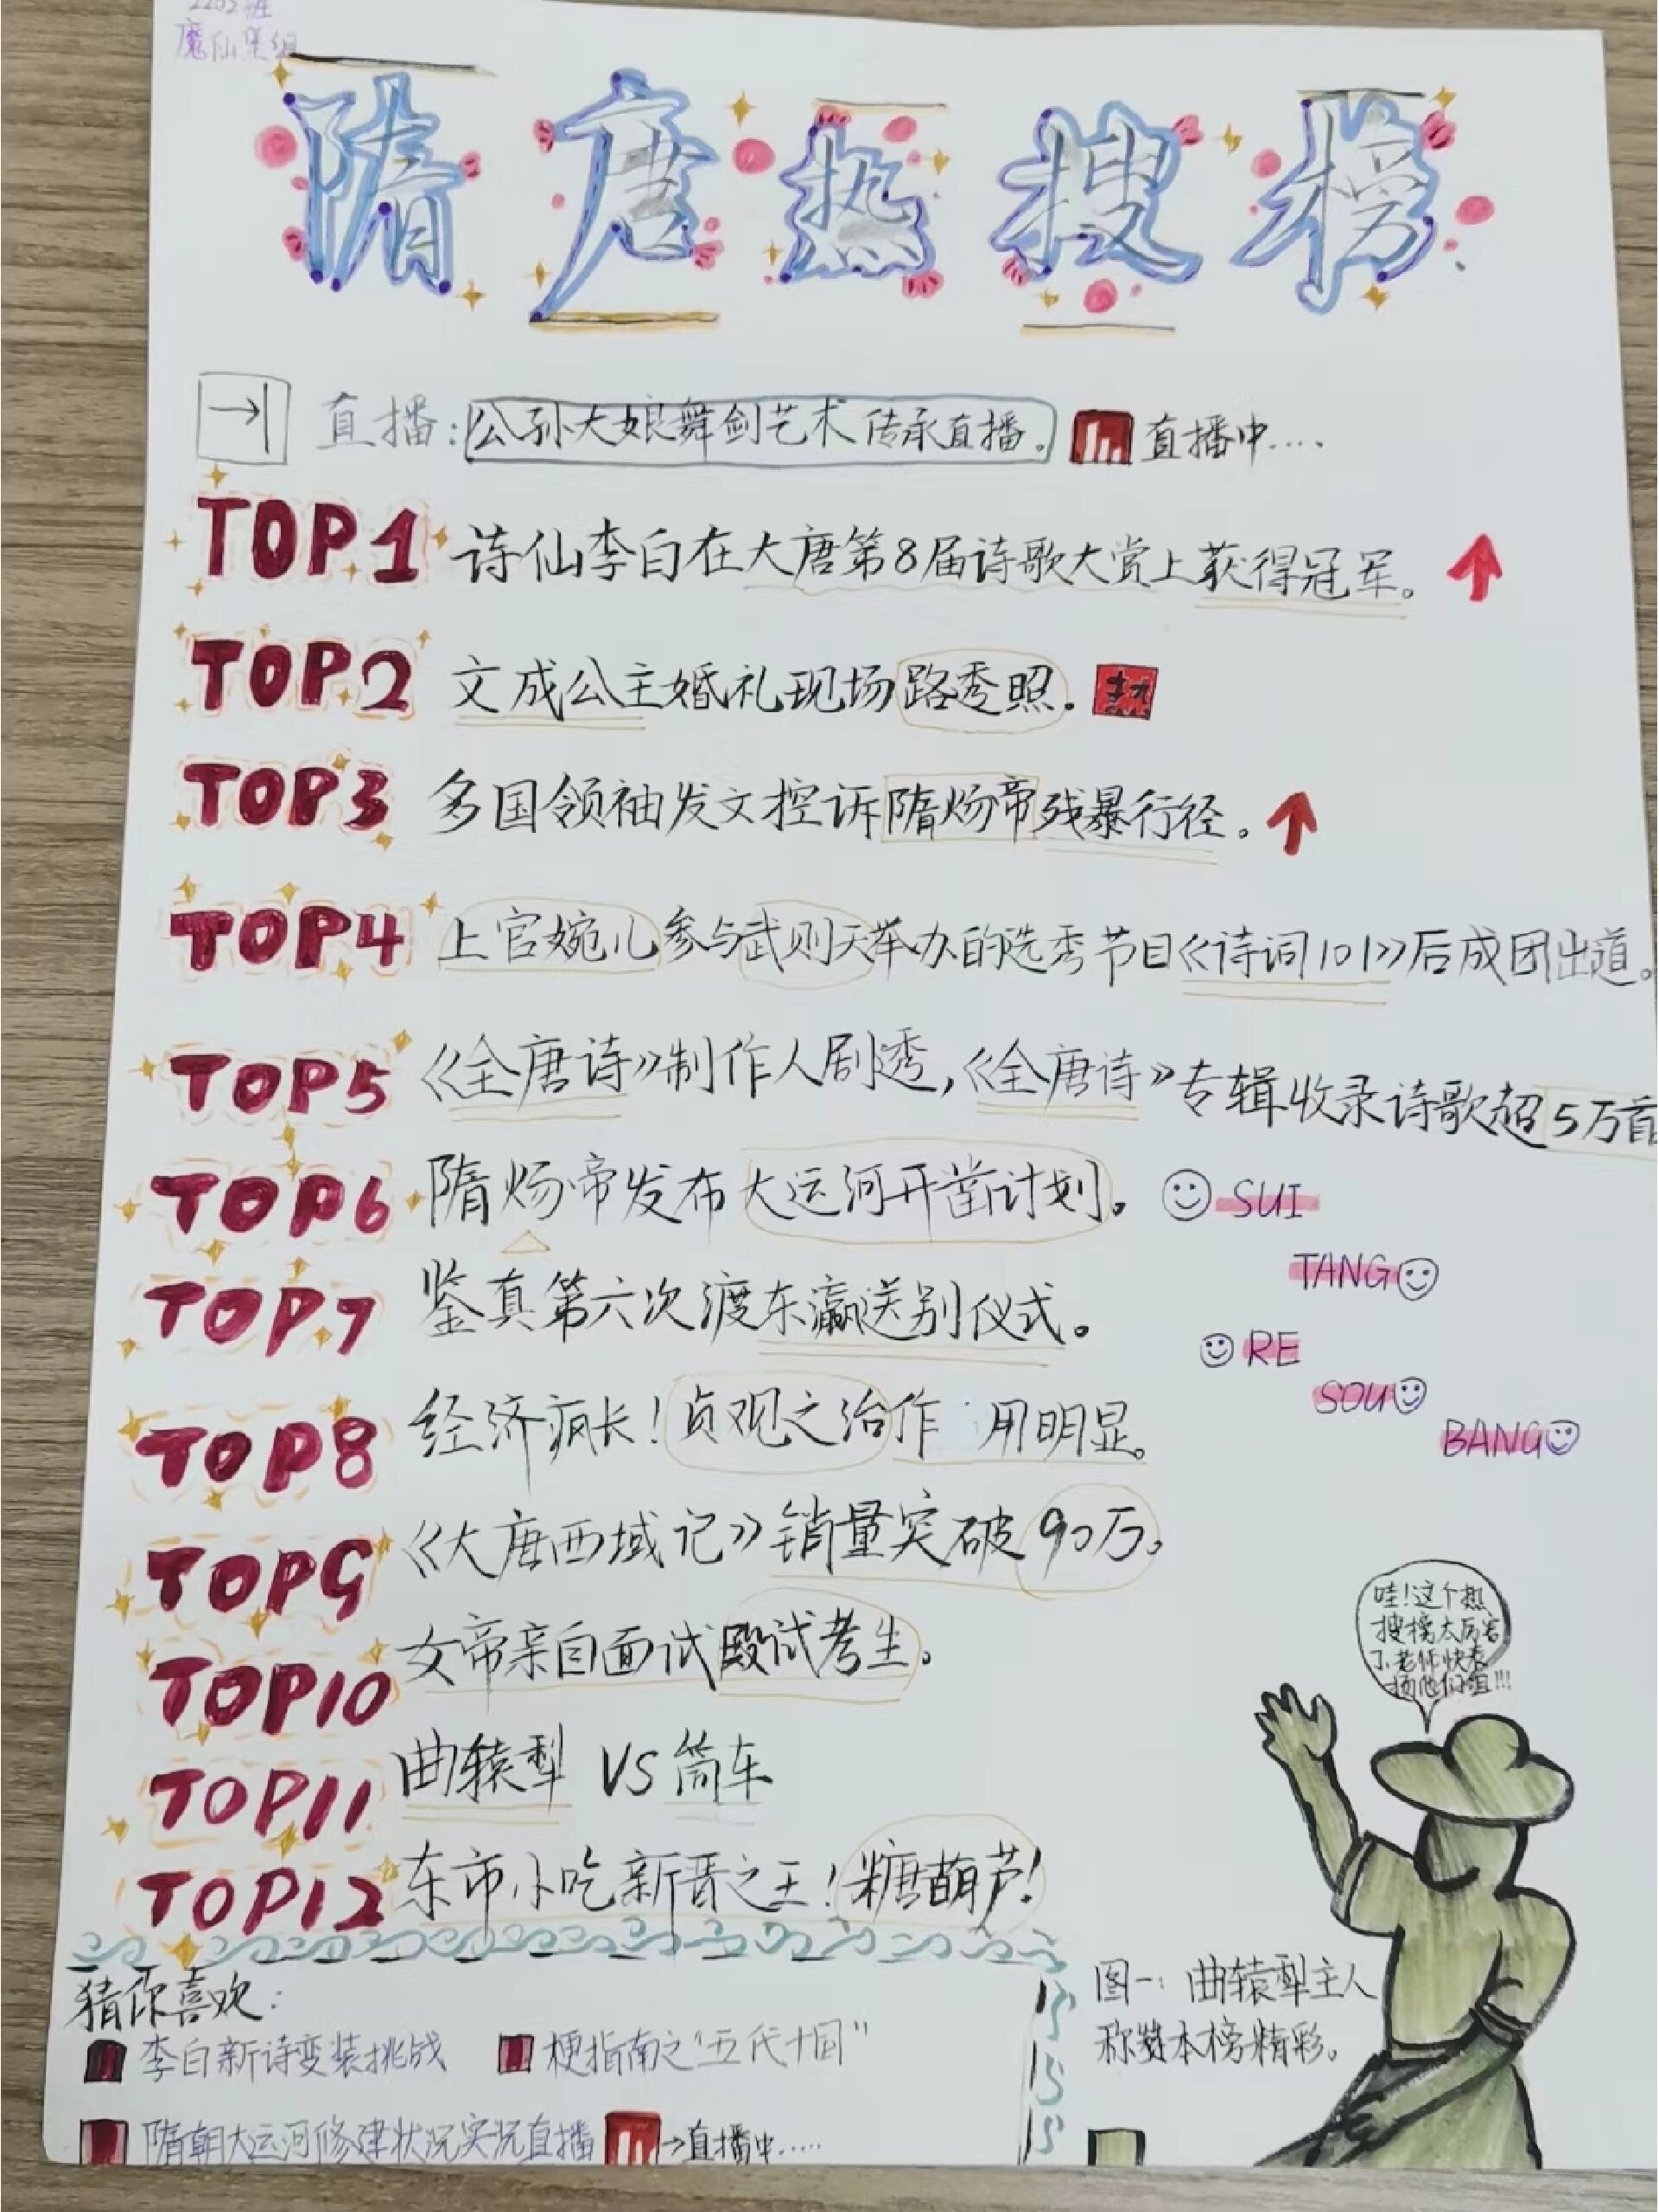 2203班
魔仙堡组
隋唐热搜榜
直播：公孙大娘舞剑艺术传承直播。 直播中....
TOP1 诗仙李白在大唐第8届诗歌大赏上获得冠军。
TOP2 文成公主婚礼现场路透照。 热
TOP3 多国领袖发文控诉隋炀帝残暴行径。
TOP4 上官婉儿参与武则天举办的选秀节目《诗词101》后成团出道。
TOP5 《全唐诗》制作人剧透,《全唐诗》专辑收录诗歌超5万首
TOP6 隋炀帝发布大运河开凿计划。 SUI
TANG
TOP7 鉴真第六次渡东瀛送别仪式。
RE
SOU
TOP8 经济疯长！贞观之治作用明显。
BANG
TOP9 《大唐西域记》销量突破90万。
TOP10 女帝亲自面试殿试考生。
TOP11 曲辕犁 VS 筒车
TOP12 东市小吃新晋之王！糖葫芦！
哇！这个热
搜榜太厉害
了,老师快表
扬他们组!!!
图一：曲辕犁主人
称赞本榜精彩。
猜你喜欢：
李白新诗变装挑战
梗指南之“五代十国”
隋朝大运河修建状况实况直播 →直播中.....